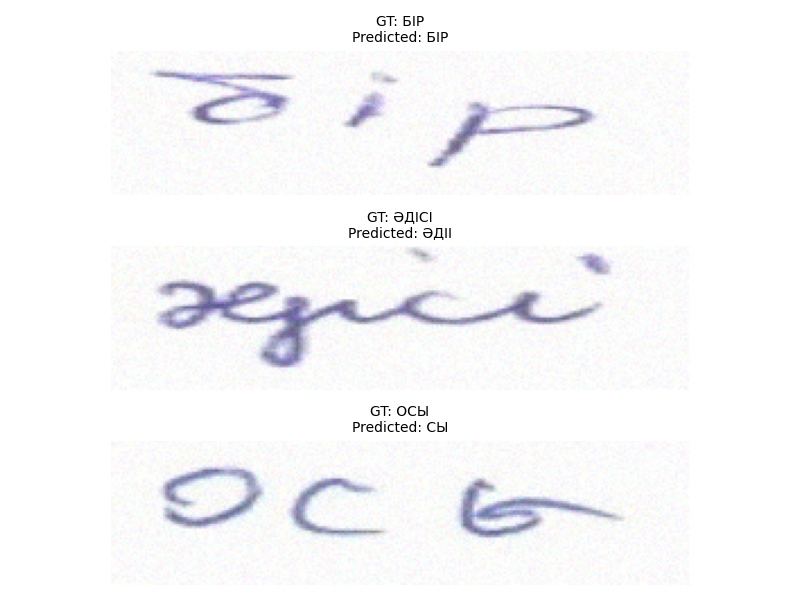 GT: БІР
Predicted: БІР
бір
GT: ӘДІСІ
Predicted: ӘДІІ
әдісі
GT: ОСЫ
Predicted: СЫ
осы